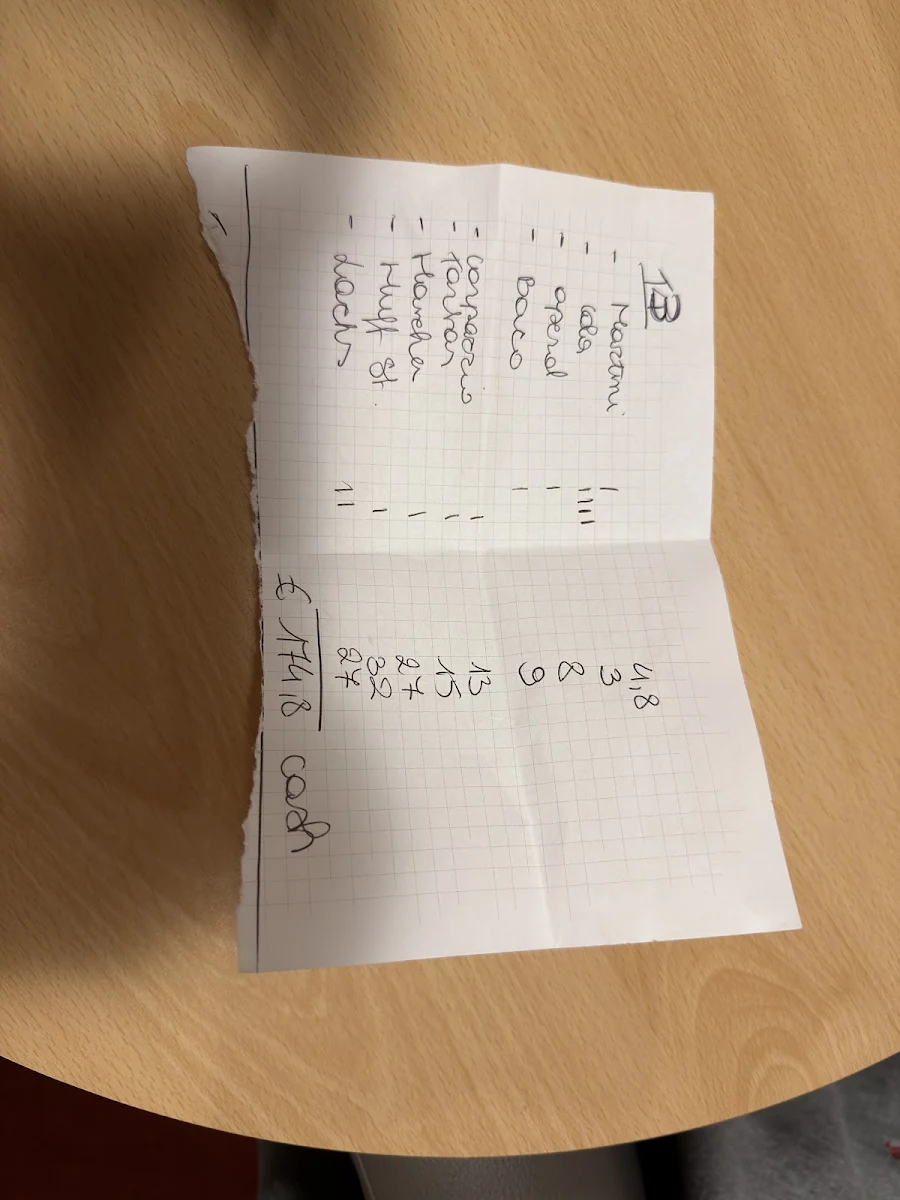 13
- Martini | 4,8
- Cola |||| 3
- aperol | 8
- Baco | 9
- Carpaccio | 13
- Tartar | 15
- 27
- Huft St. | 32
- Lachs || 27
€ 174,8 cash